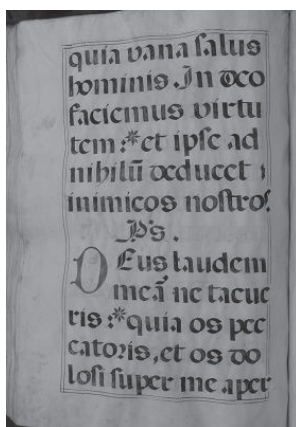 quia vana salus
hominis. In deo
faciemus virtu
tem :* et ipse ad
nihilū deducet i
inimicos nostros.
Ps.
DEus laudem
meā ne tacue
ris :* quia os pec
catoris, et os do
losi super me aper